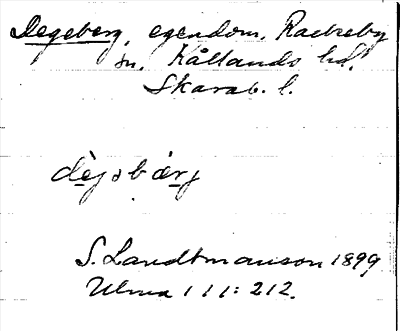 Degeberg, egendom, Rackeby
sn. Kållands hd.
Skarab. l.
dèjsbærj
S. Landtmanson 1899,
Ulma 111:212.